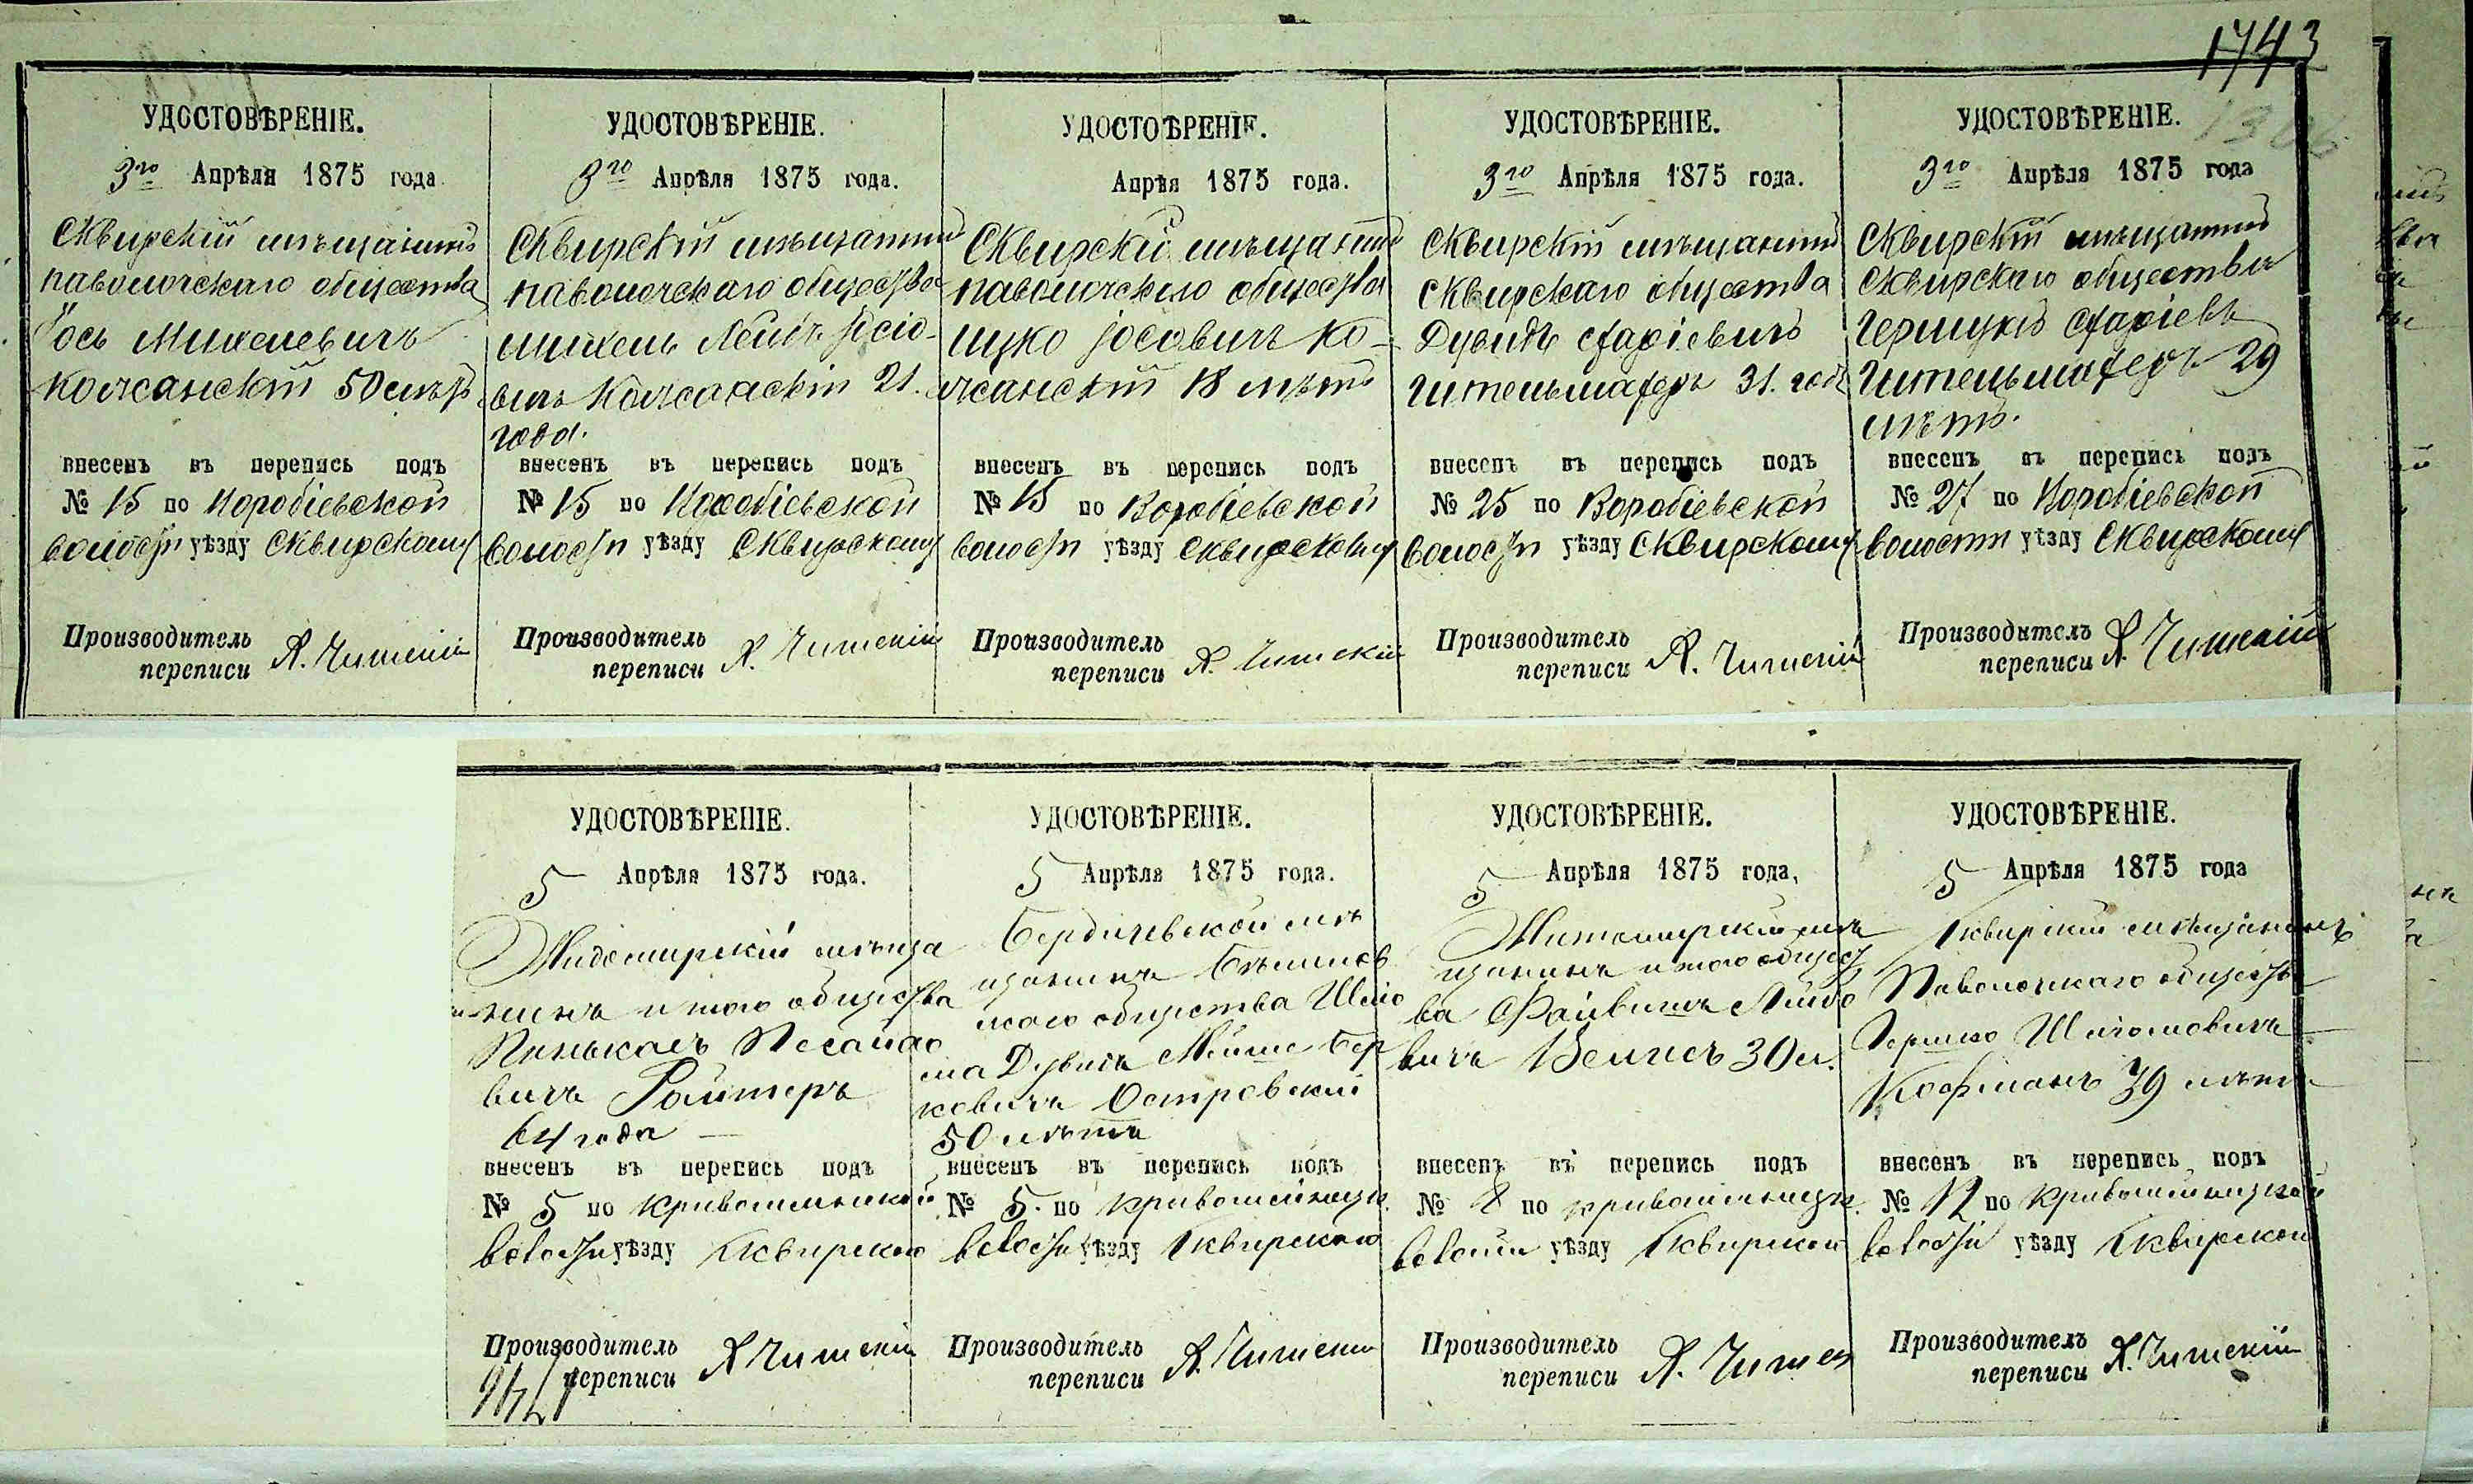 1743
1306
УДОСТОВѢРЕНІЕ.
3го Апрѣля 1875 года
Сквирскій мѣщанинъ
паволочскаго общества
Іось Михелевичъ
Колчанскій 50 лѣтъ
внесенъ въ перепись подъ
№ 15 по Воробіевской
волости уѣзду Сквирскому
Производитель
переписи А. Чишскій
УДОСТОВѢРЕНІЕ.
3го Апрѣля 1875 года.
Сквирскій мѣщанинъ
паволочскаго общества
Михель Іосіо-
вичъ Колчанскій 21.
года.
внесенъ въ перепись подъ
№ 15 по Воробіевской
волости уѣзду Сквирскому
Производитель
переписи А. Чишскій
УДОСТОѢРЕНІЕ.
Апрѣя 1875 года.
Сквирскій мѣщанинъ
паволочскаго общества
Ицко Іосовичъ Ко-
лчанскій 18 лѣтъ
внесенъ въ перепись подъ
№ 15 по Воробіевской
волости уѣзду Сквирскому
Производитель
переписи А. Чишскій
УДОСТОВѢРЕНІЕ.
3го Апрѣля 1875 года.
Сквирскій мѣщанинъ
Сквирскаго общества
Дувидъ
Гительмахеръ 31. годъ
внесенъ въ перепись подъ
№ 25 по Воробіевской
волости уѣзду Сквирскому
Производитель
переписи А. Чишскій
УДОСТОВѢРЕНІЕ.
3го Апрѣля 1875 года
Сквирскій мѣщанинъ
Сквирскаго общества
Гительмахеръ 29
лѣтъ.
внесенъ въ перепись подъ
№ 27 по Воробіевской
волости уѣзду Сквирскому
Производитель
переписи А. Чишскій
УДОСТОВѢРЕНІЕ.
5 Апрѣля 1875 года.
Жидомирскій мѣща
нинъ и того общества
Пинькасъ
вичъ Ройтеръ
64 года
внесенъ въ перепись подъ
№ 5 по
волости уѣзду Сквирско
Производитель
переписи А Чишскій
УДОСТОВѢРЕНІЕ.
5 Апрѣля 1875 года.
Бердичевской мѣ
щанинъ
общества Шлио
ма Дувидъ Мойше Бер
ковичъ Островскій
50 лѣтъ
внесенъ въ перепись подъ
№ 5. по
волости уѣзду Сквирско
Производитель
переписи А. Чишскій
УДОСТОВѢРЕНІЕ.
5 Апрѣля 1875 года,
Житомирскій мѣ
щанинъ и того общест
ва Файвишъ Лейбо
вичъ 30 л.
внесенъ въ перепись подъ
№ 8 по
волости уѣзду Сквирской
Производитель
переписи А. Чишск
УДОСТОВѢРЕНІЕ.
5 Апрѣля 1875 года
Сквирскій мѣщанинъ
Паволочкаго общества
Гершко Шліомовичъ
Кофманъ 39 лѣтъ
внесенъ въ перепись подъ
№ 12 по
волости уѣзду Сквирской
Производитель
переписи А. Чишскій